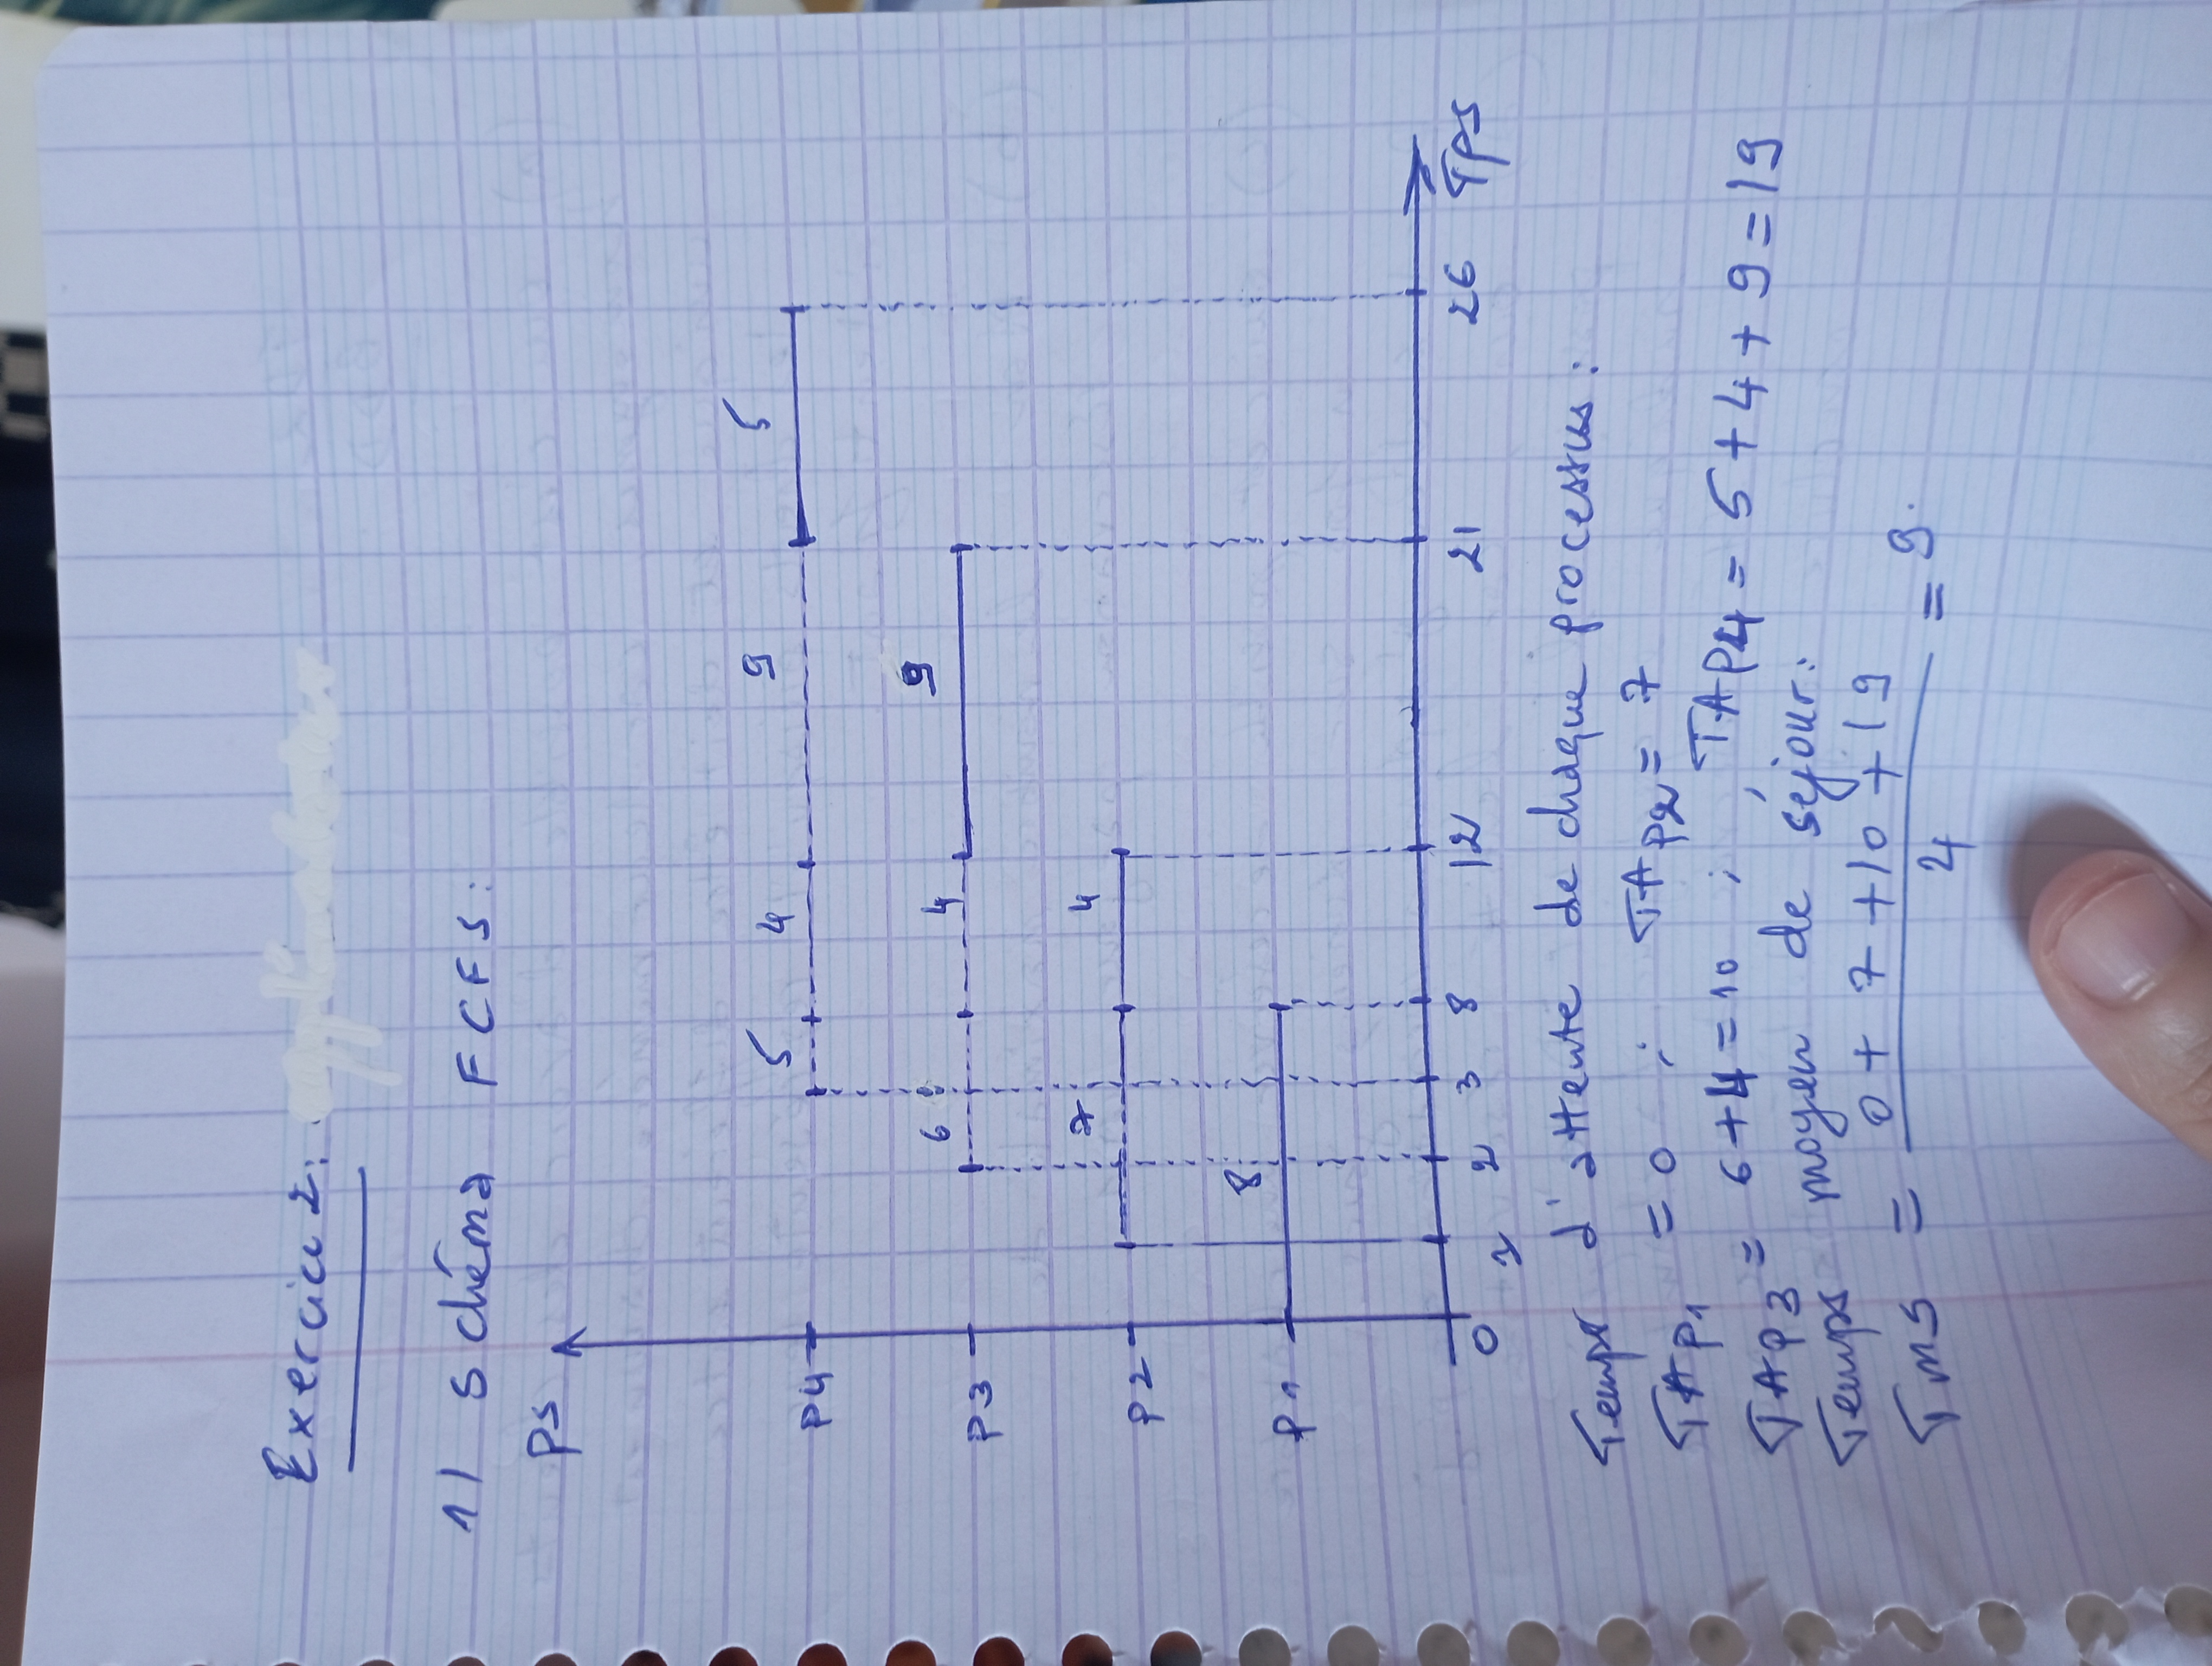 Exercice 2:
1) Schéma FCFS:
ps
5 4 9 5
P4
6 4 9
P3
7 4
P2
8
P1
0 1 2 3 8 12 21 26 Tps
Temps d'attente de chaque processus:
TAP1 = 0 ; TAP2 = 7
TAP3 = 6+4=10 ; TAP4 = 5+4+9=19
Temps moyen de séjour:
TMS = 0 + 7 +10 +19 / 4 = 9.